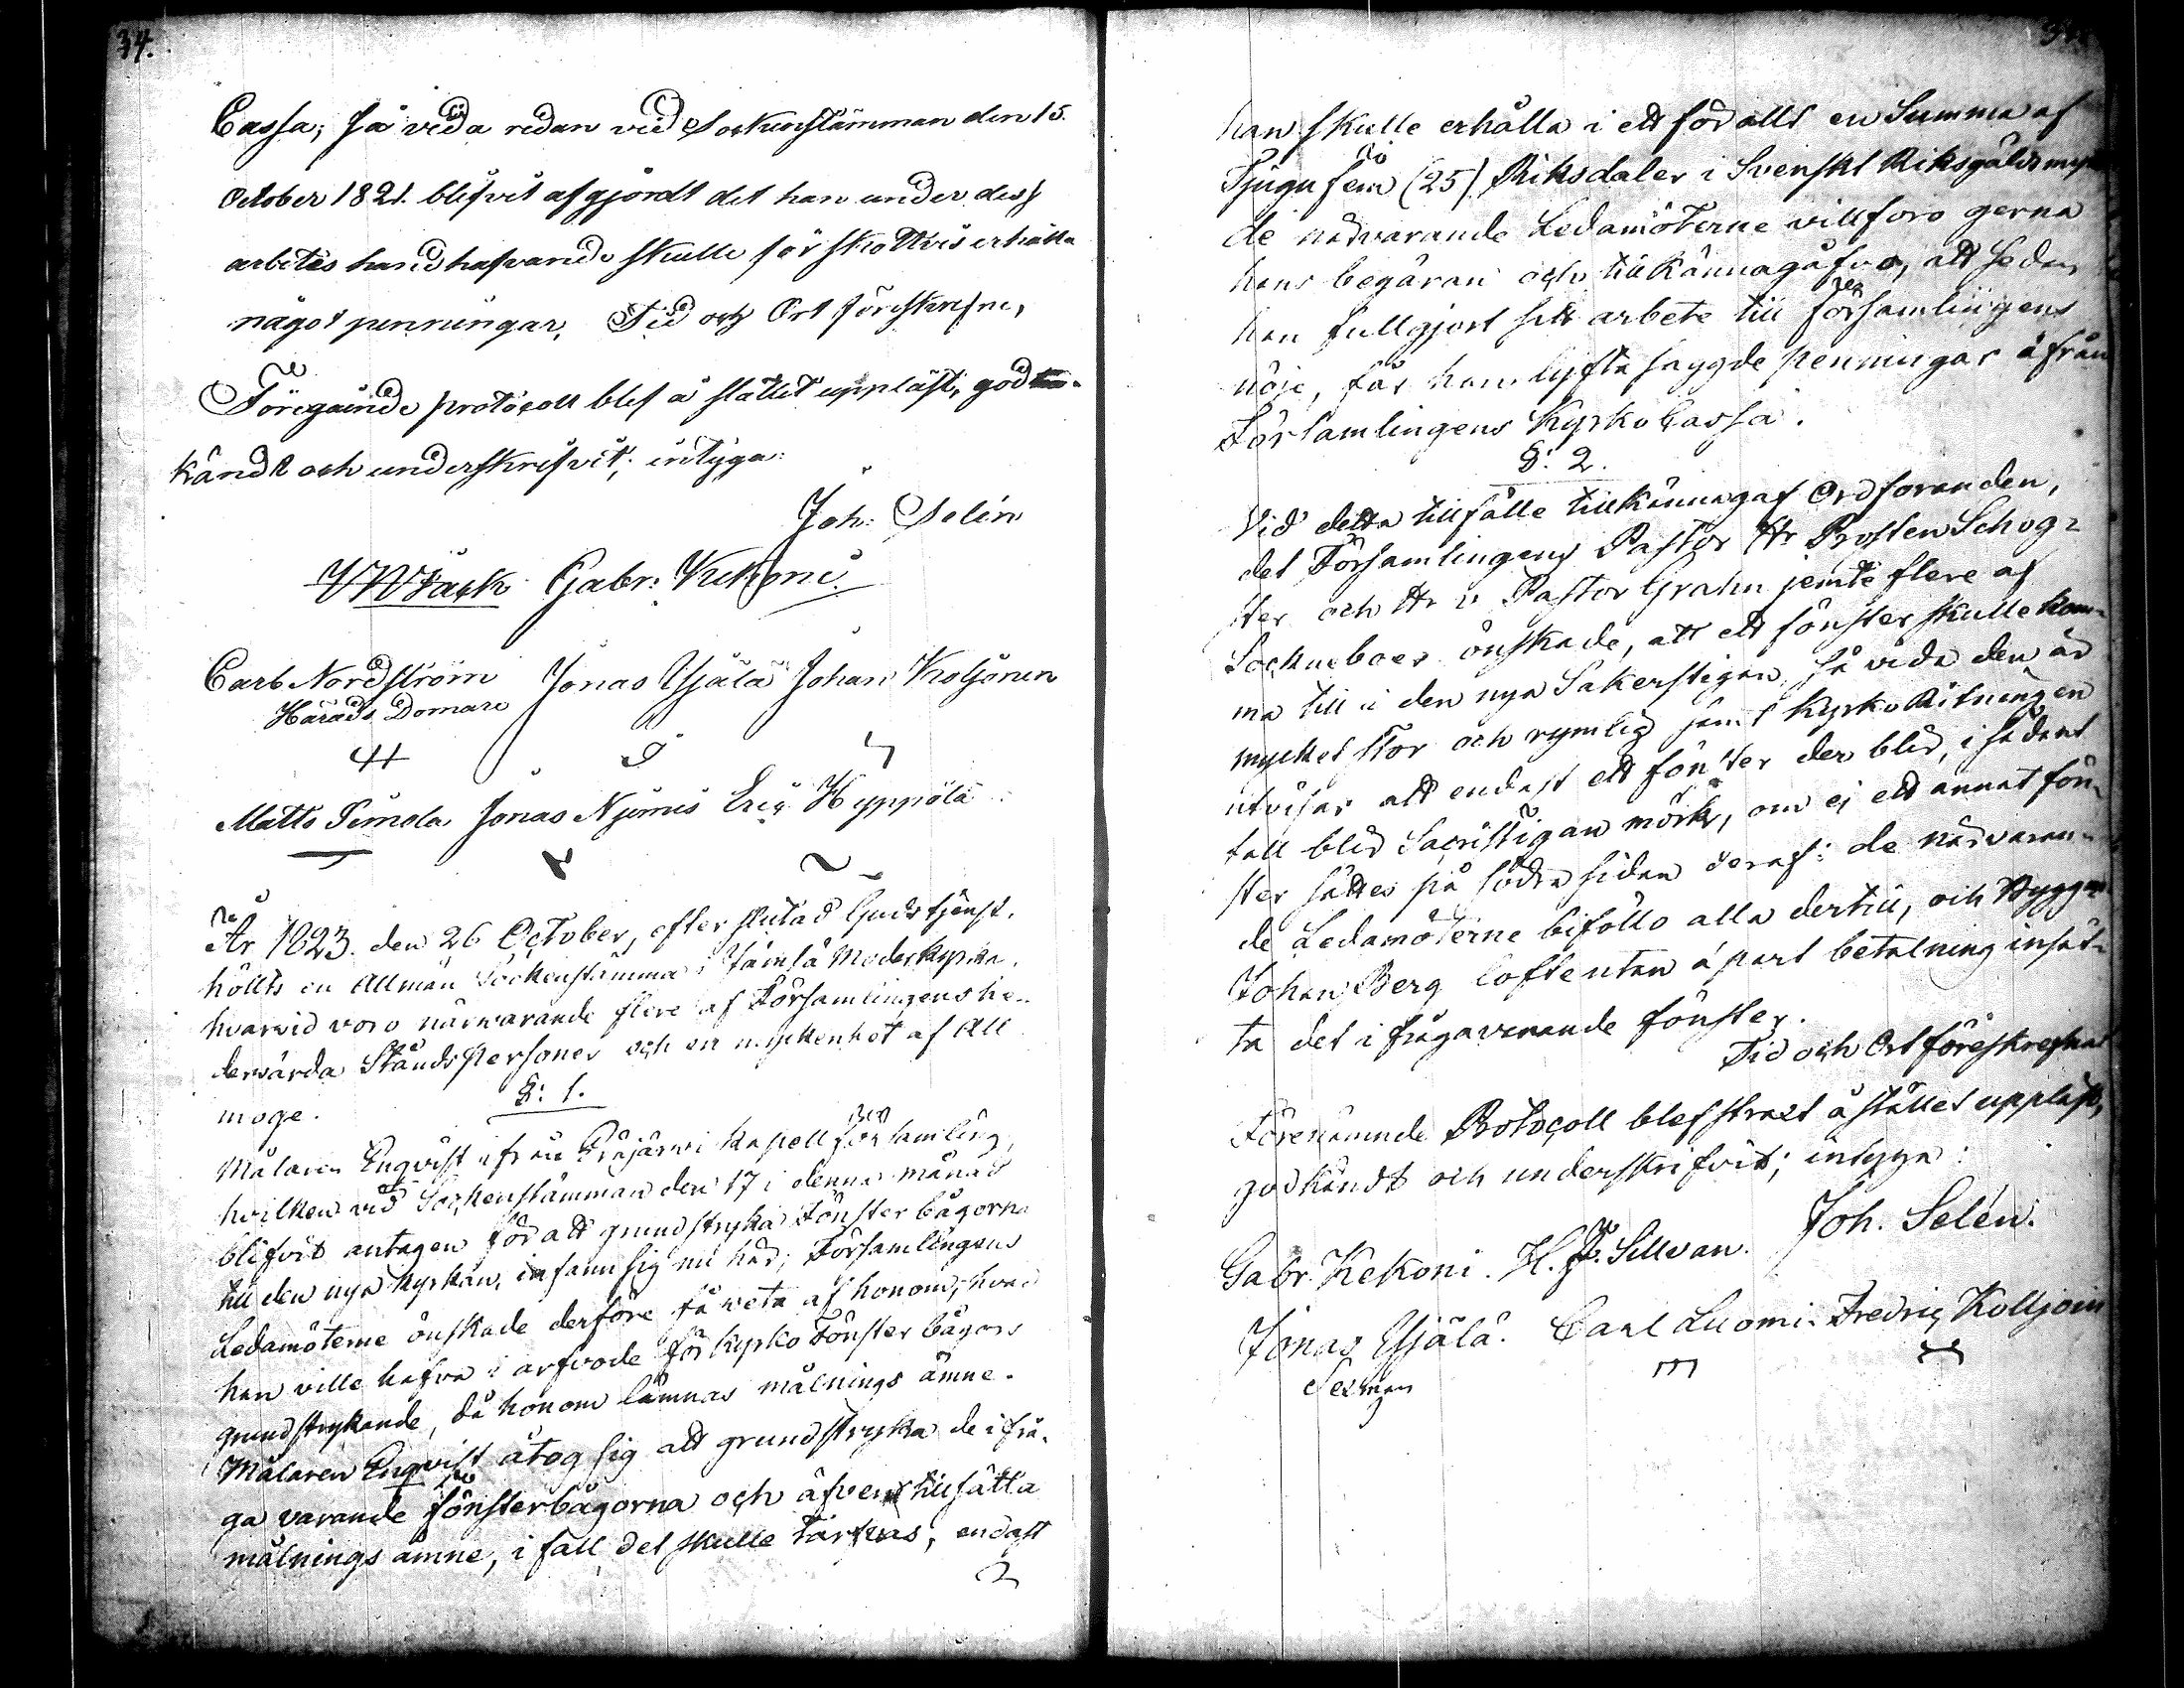 34.
Cassa; så vida redan vid Sockenstämman den 15.
October 1821. blifvit afgjordt det han under dess
arbetes handhafvande skulle förskottvis erhålla
något penningar, Tid och Ort föreskrefne,
Föregående protocoll blef å stället uppläst, god-
kändt och underskrifvit; intyga:
Joh: Selin
Gabr: Kekoni
Carl Nordström Jonas Ujälä Johan Koljonen
Härads Domare
Matts Simola Jonas Njemis Eric Hyppölä
År 1823. den 26 October, efter slutad Gudstjenst,
hölts en Allmän Sockenstämma i Jämsä Moderkyrka,
hvarvid voro närvarande flere af Församlingens he-
dervärda Ståndspersoner och en myckenhet af All
moge.
§: 1.
Målaren Enqvist ifrån Kapellförsamling,
hvilken vid Sockenstämman den 17 i denna månad
blifvit antagen för att grundstryka Fönster bågorna
till den nya kyrkan, infann sig nu här; Församlingens
Ledamöterne önskade derföre få veta af honom, hvad
han ville hafva i arfvode för kyrko Fönster bågors
grundstrykande, då honom lämnas målnings ämne.
Målaren Enqvist åtog sig att grundstryka de i frå-
ga varande fönsterbågorna och äfven tillsätta
målnings ämne, i fall det skulle tarfvas, endast
han skulle erhålla i ett för allt en Summa af
Tjugufem (25) Riksdaler i Svenskt Riksgälds mynt
de närvarande Ledamöterne villforo gerna
hans begäran och tillkännagåfvo, att sedan
han fullgjort sitt arbete till församlingens
nöje, får han lyfta sagde penningar ifrån
Församlingens Kyrko Cassa.
§: 2.
Vid detta tillfälle tillkännagaf Ordföranden,
det Församlingens Pastor Hr Prosten Schog-
ster och Hr v. Pastor Grahn jemte flere af
Sockneboer önskade, att ett fönster skulle kom-
ma till i den nya Sakerstigan, så vida den är
mycket stor och rymlig samt Kyrko Ritningen
utvisar att endast ett fönster der blir, i sådant
fall blir Sacristigan mörk, om ej ett annat fön-
ster sättes på södra sidan deraf: de närvaran-
de Ledamöterne biföllo alla dertill, och Byggm
Johan Berg lofte utan á part betalning insät-
ta det i fråga varande fönster.
Tid och Ort föreskrefne
Förenämnde Protocoll blef straxt å stället uppläst,
godkändt och underskrifvit; intyga:
Joh. Selén.
Gabr. Kekoni. H. J. Sillvan.
Jonas Ujälä. Carl Luomi. Fredric Kolljoin
Sexman